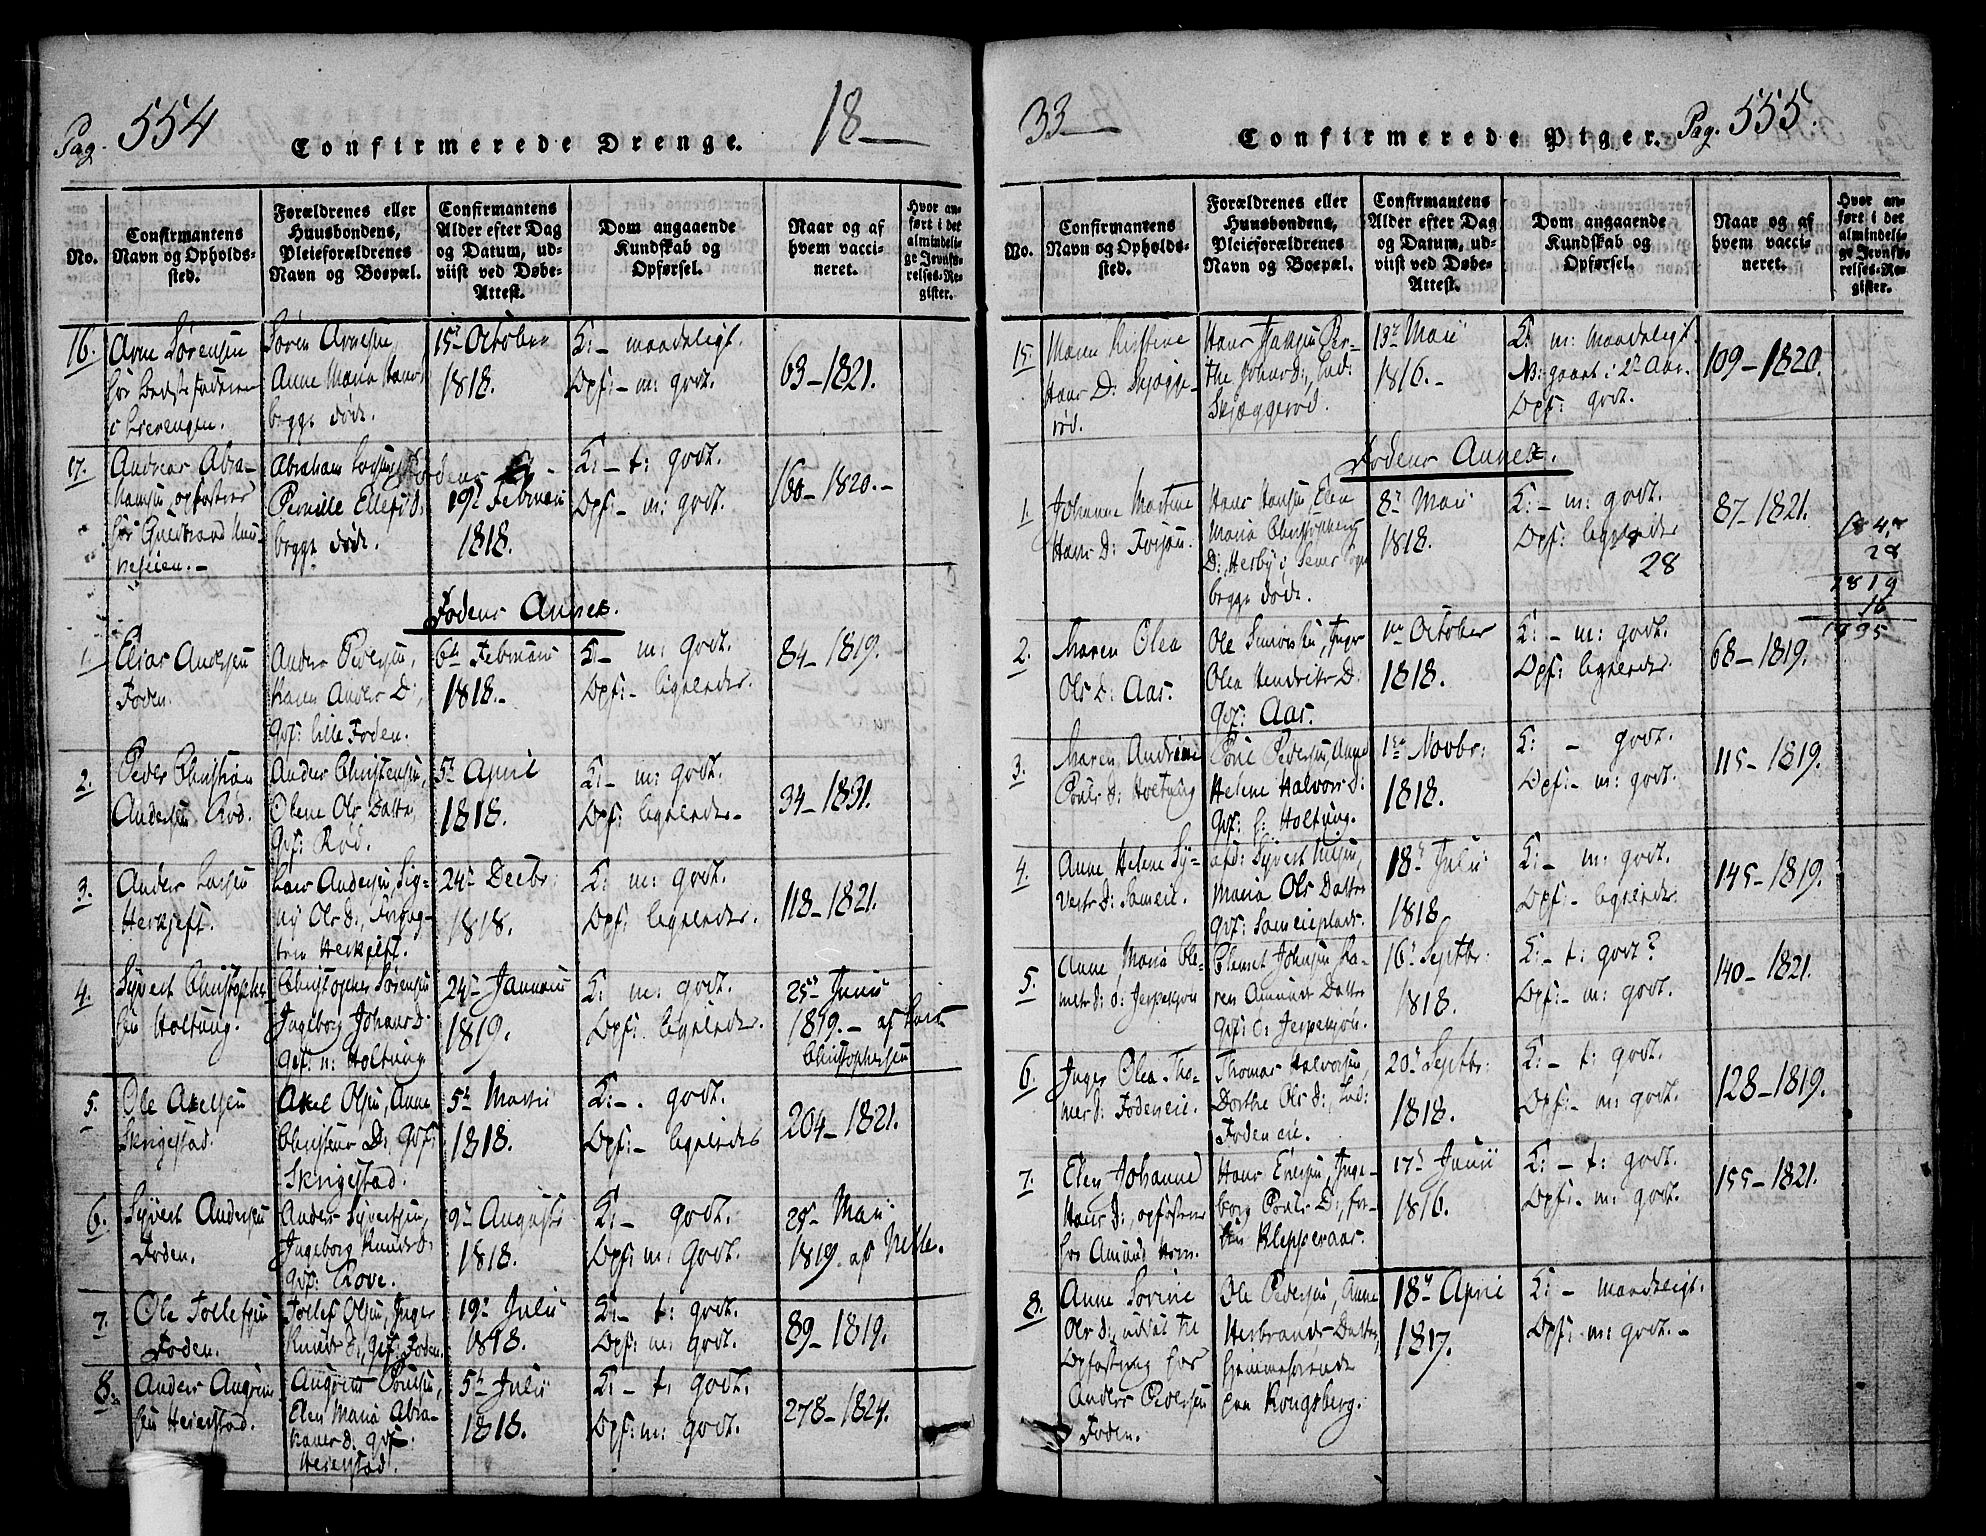 Pag. 554
Confirmerede Drenge.
18—
No.
Confirmantens
Navn og Opholds-
sted.
Forældrenes eller
Huusbondens,
Pleieforældrenes
Navn og Boepæl.
Confirmantens
Alder efter Dag
og Datum, ud-
viist ved Døbe-
Attest.
Dom angaaende
Kundskab og
Opførsel.
Naar og af
hvem vacci-
neret.
Hvor an-
ført i det
almindeli-
ge Jevnfø-
relses-Re-
gister.
16.
Arne Sørensen
hos Bedstefaderen
Søren Arnesen,
Anne Maria Hans
begge døde.
15de October
1818.
K:— maadeligt.
Opf:— m: godt.
63—1821.
17.
Andreas Abra-
hamsen, opfostres
hos Guldbrand
Abraham
Pernille
begge døde.
19de Februari
1818.
K:— t: godt.
Opf:— m: godt.
160—1820.—
Fodens Annex.
1
Elias Andersen
Foden.
Anders Pedersen,
Karen Anders D:,
Gdf: lille Foden.
6te Februari
1818.—
K:— m: godt.
Opf:— ligeledes.
84—1819.
2.
Peder Christian
Andersen Rød.
Anders Christensen,
Olene Ols Datter,
Gdf: Rød.
5te April
1818.
K:— m: godt.
Opf:— ligeledes.
34—1831.
3.
Anders Larsen
Herkjeft.
Lars Andersen, Sig-
ny Ols D:,
Herkjeft.
24de Decbr:
1818.
K: m: godt.
Opf: ligeledes.
118—1821.
4.
Syvert Christopher-
sen Holtung.
Christopher Sørensen
Ingeborg Johans D:
Gdf: n: Holtung
24de Januarii
1819.
K: m: godt.
Opf: ligeledes.
25de Junii
1819.— af Lars
Christophersen
5.
Ole Axelsen
Skrigestad.
Axel Olsen, Anne
Christens D: Gdf:
Skrigestad.
5te Martii
1818.
K:—. godt.
Opf:— ligeledes
204—1821.
6.
Syvert Andersen
Foden.
Anders Syvertsen,
Ingeborg Knuds D:
Gdf: Hove.
9de Augusti
1818.
K:— godt.
Opf: m: godt.
25 Maii
1819. af
7.
Ole Tollefsen
Foden.
Tollef Olsen, Inger
Knuds D:, Gdf: Foden.
19de Julii
1818.
K:— t: godt.
Opf: m: godt.
89—1819.
8.
Anders Augrim-
sen Heiestad.
Augrim Poulsen,
Elen Maria Abra-
hams D: Gdf:
Heiestad.
5te Julii
1818.
K:— t: godt.
Opf: m: godt.
278—1824.
33—
Confirmerede Piger.
Pag. 555.
No.
Confirmantens
Navn og Opholds-
sted.
Forældrenes eller
Huusbondens,
Pleieforældrenes
Navn og Boepæl.
Confirmantens
Alder efter Dag
og Datum, ud-
viist ved Døbe-
Attest.
Dom angaaende
Kundskab og
Opførsel.
Naar og af
hvem vacci-
neret.
Hvor an-
ført i det
almindeli-
ge Jevnfø-
relses-Re-
gister.
15.
Maren Kirstine
Hans D: Skjægge-
rød.
Hans Jensen, Ber-
the Johans D:, Ind:
Skjæggerød.
13de Maii
1816.—
K: m: maadeligt.
N: gaaet i 2de Aar.
Opf: godt.
109—1820.
Fodens Annex.
1
Johanne Martine
Hans D:
Hans Hansen, Elen
Maria Christophers
D:
begge døde.
8de Maii
1818.
K:— m: godt.
Opf: ligeledes
28
87—1821.
28
1819
16
2.
Maren Olea
Ols D: Aas.
Ole Simonsen, Inger
Olea Hendriks D:
Gdf: Aas.
1ste October
1818.
K:— m: godt.
Opf: ligeledes.
68—1819.
3.
Maren Andrine
Pouls D: Holtung
Poul Pedersen, Anne
Helene Halvors D:
Gdf: Holtung.
1ste Novbr:
1818.
K:— godt.
Opf:— m: godt.
115—1819.
4.
Anne Helene Sy-
verts D: Sameie.
afd: Syvert Nilsen,
Maria Ols Datter
Gdf: Sameieplads.
18de Julii
1818.
K:— m: godt.
Opf:— ligeledes.
145—1819.
5.
Anne Maria Cle-
mets D: ø: Jerpekjøn
Clemet Johnsen, Ka-
ren Amunds Datter
Gdf: ø: Jerpekjøn.
16de Septbr:
1818.
K:— t: godt?
Opf:— m: godt.
140—1821.
6.
Inger Olea Tho-
mes D: Fodeneie.
Thomas Halvorsen,
Dorthe Ols D:, Ind:
Fodeneie.
20de Septbr:
1818.
K:— t: godt.
Opf:— m: godt.
128—1819.
7.
Elen Johanne
Hans D:, opfostres
hos Amund
Hans Ensen, Inge-
borg Pouls D:,
Klepperaas.
17de Junii
1816.
K:— t: godt.
Opf:— m: godt.
155—1821.
8.
Anne Sovine
Ols D:, udsat til
Opfostring hos
Anders Pedersen
Foden.
Ole Pedersen, Anne
Herbrands Datter,
hjemmehørende
paa Kongsberg.
18de April
1817.
K:— maadeligt.
Opf:— m: godt.—